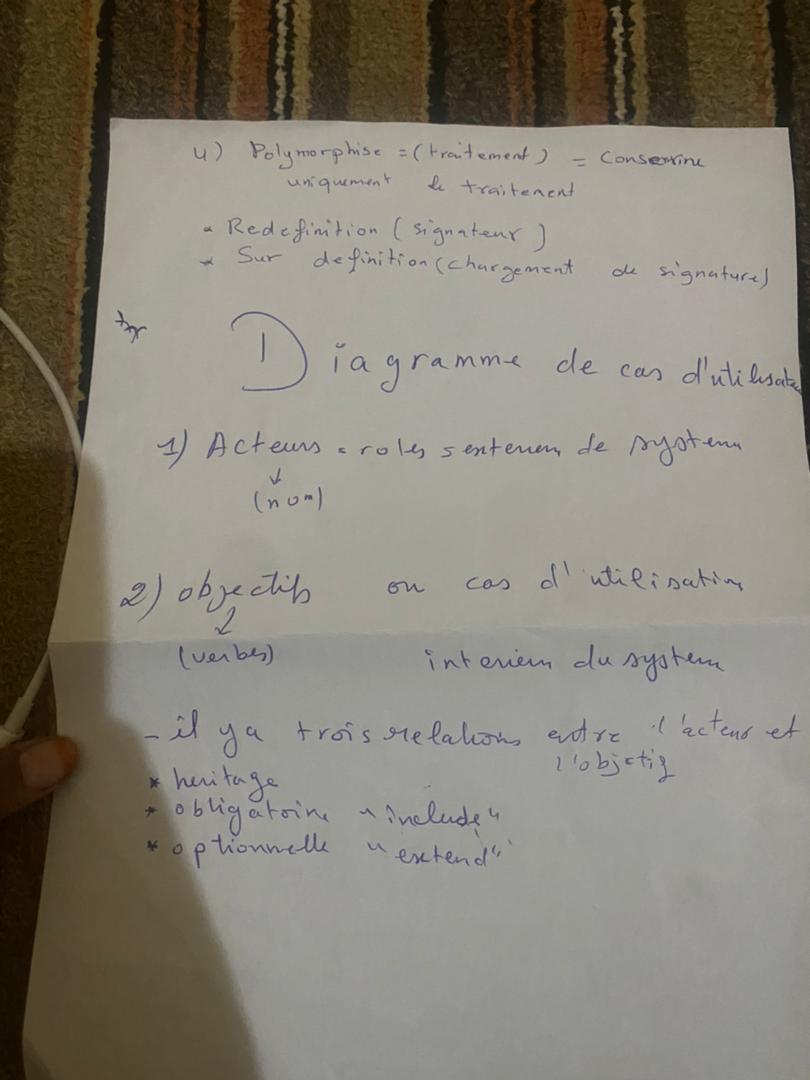 4) Polymorphise = (traitement) = Conserrine
uniquement le traitement
* Redefinition (signateur)
* Sur definition (chargement de signature)
Diagramme de cas d'utilisat
1) Acteurs = roles sexterieur de systeme
(nom)
2) objectifs ou cas d'utilisation
(verbes) interieur du systeme
- il ya trois relations entre l'acteur et
l'objectif
* heritage
* obligatoire "include"
* optionnelle "extend"